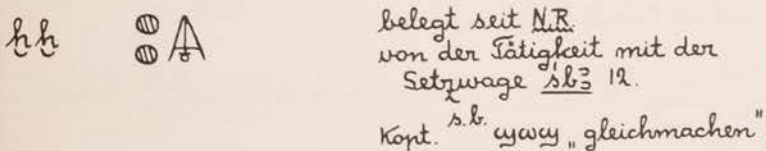 ḫḫ 𓐍𓐍 belegt seit N.R.
von der Tätigkeit mit der
Setzwage śbꜣ 12.
Kopt. s.b. ϣⲱϣ „gleichmachen"